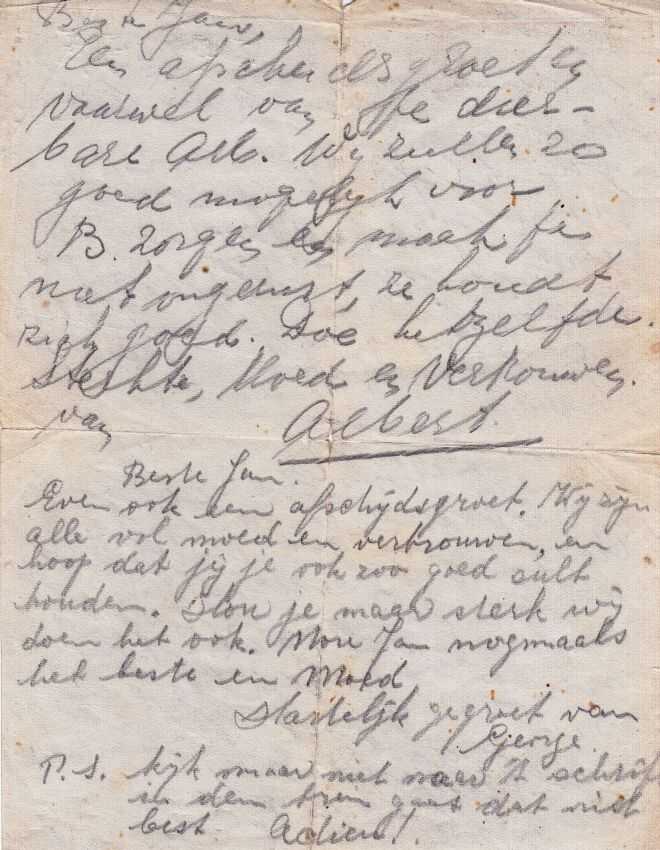 Beste Jan,
Een afscheidsgroet en
vaarwel van je dier-
bare Alb. Wij zullen zo
goed mogelijk voor
B. zorgen en maak je
niet ongerust, ze houdt
zich goed. Doe hetzelfde.
Sterkte, Moed en Vertrouwen.
van Albert.
Beste Jan.
Even ook een afschijdsgroet. Wij zijn
alle vol moed en vertrouwen, en
hoop dat jij je ook zoo goed sult
houden. Hou je maar sterk wij
doen het ook. Nou Jan nogmaals
het beste en Moed
Hartelijk gegroet van
George
P.S. kijk maar niet naar 't schrift
in den trein gaat dat niet
best. Adieu!